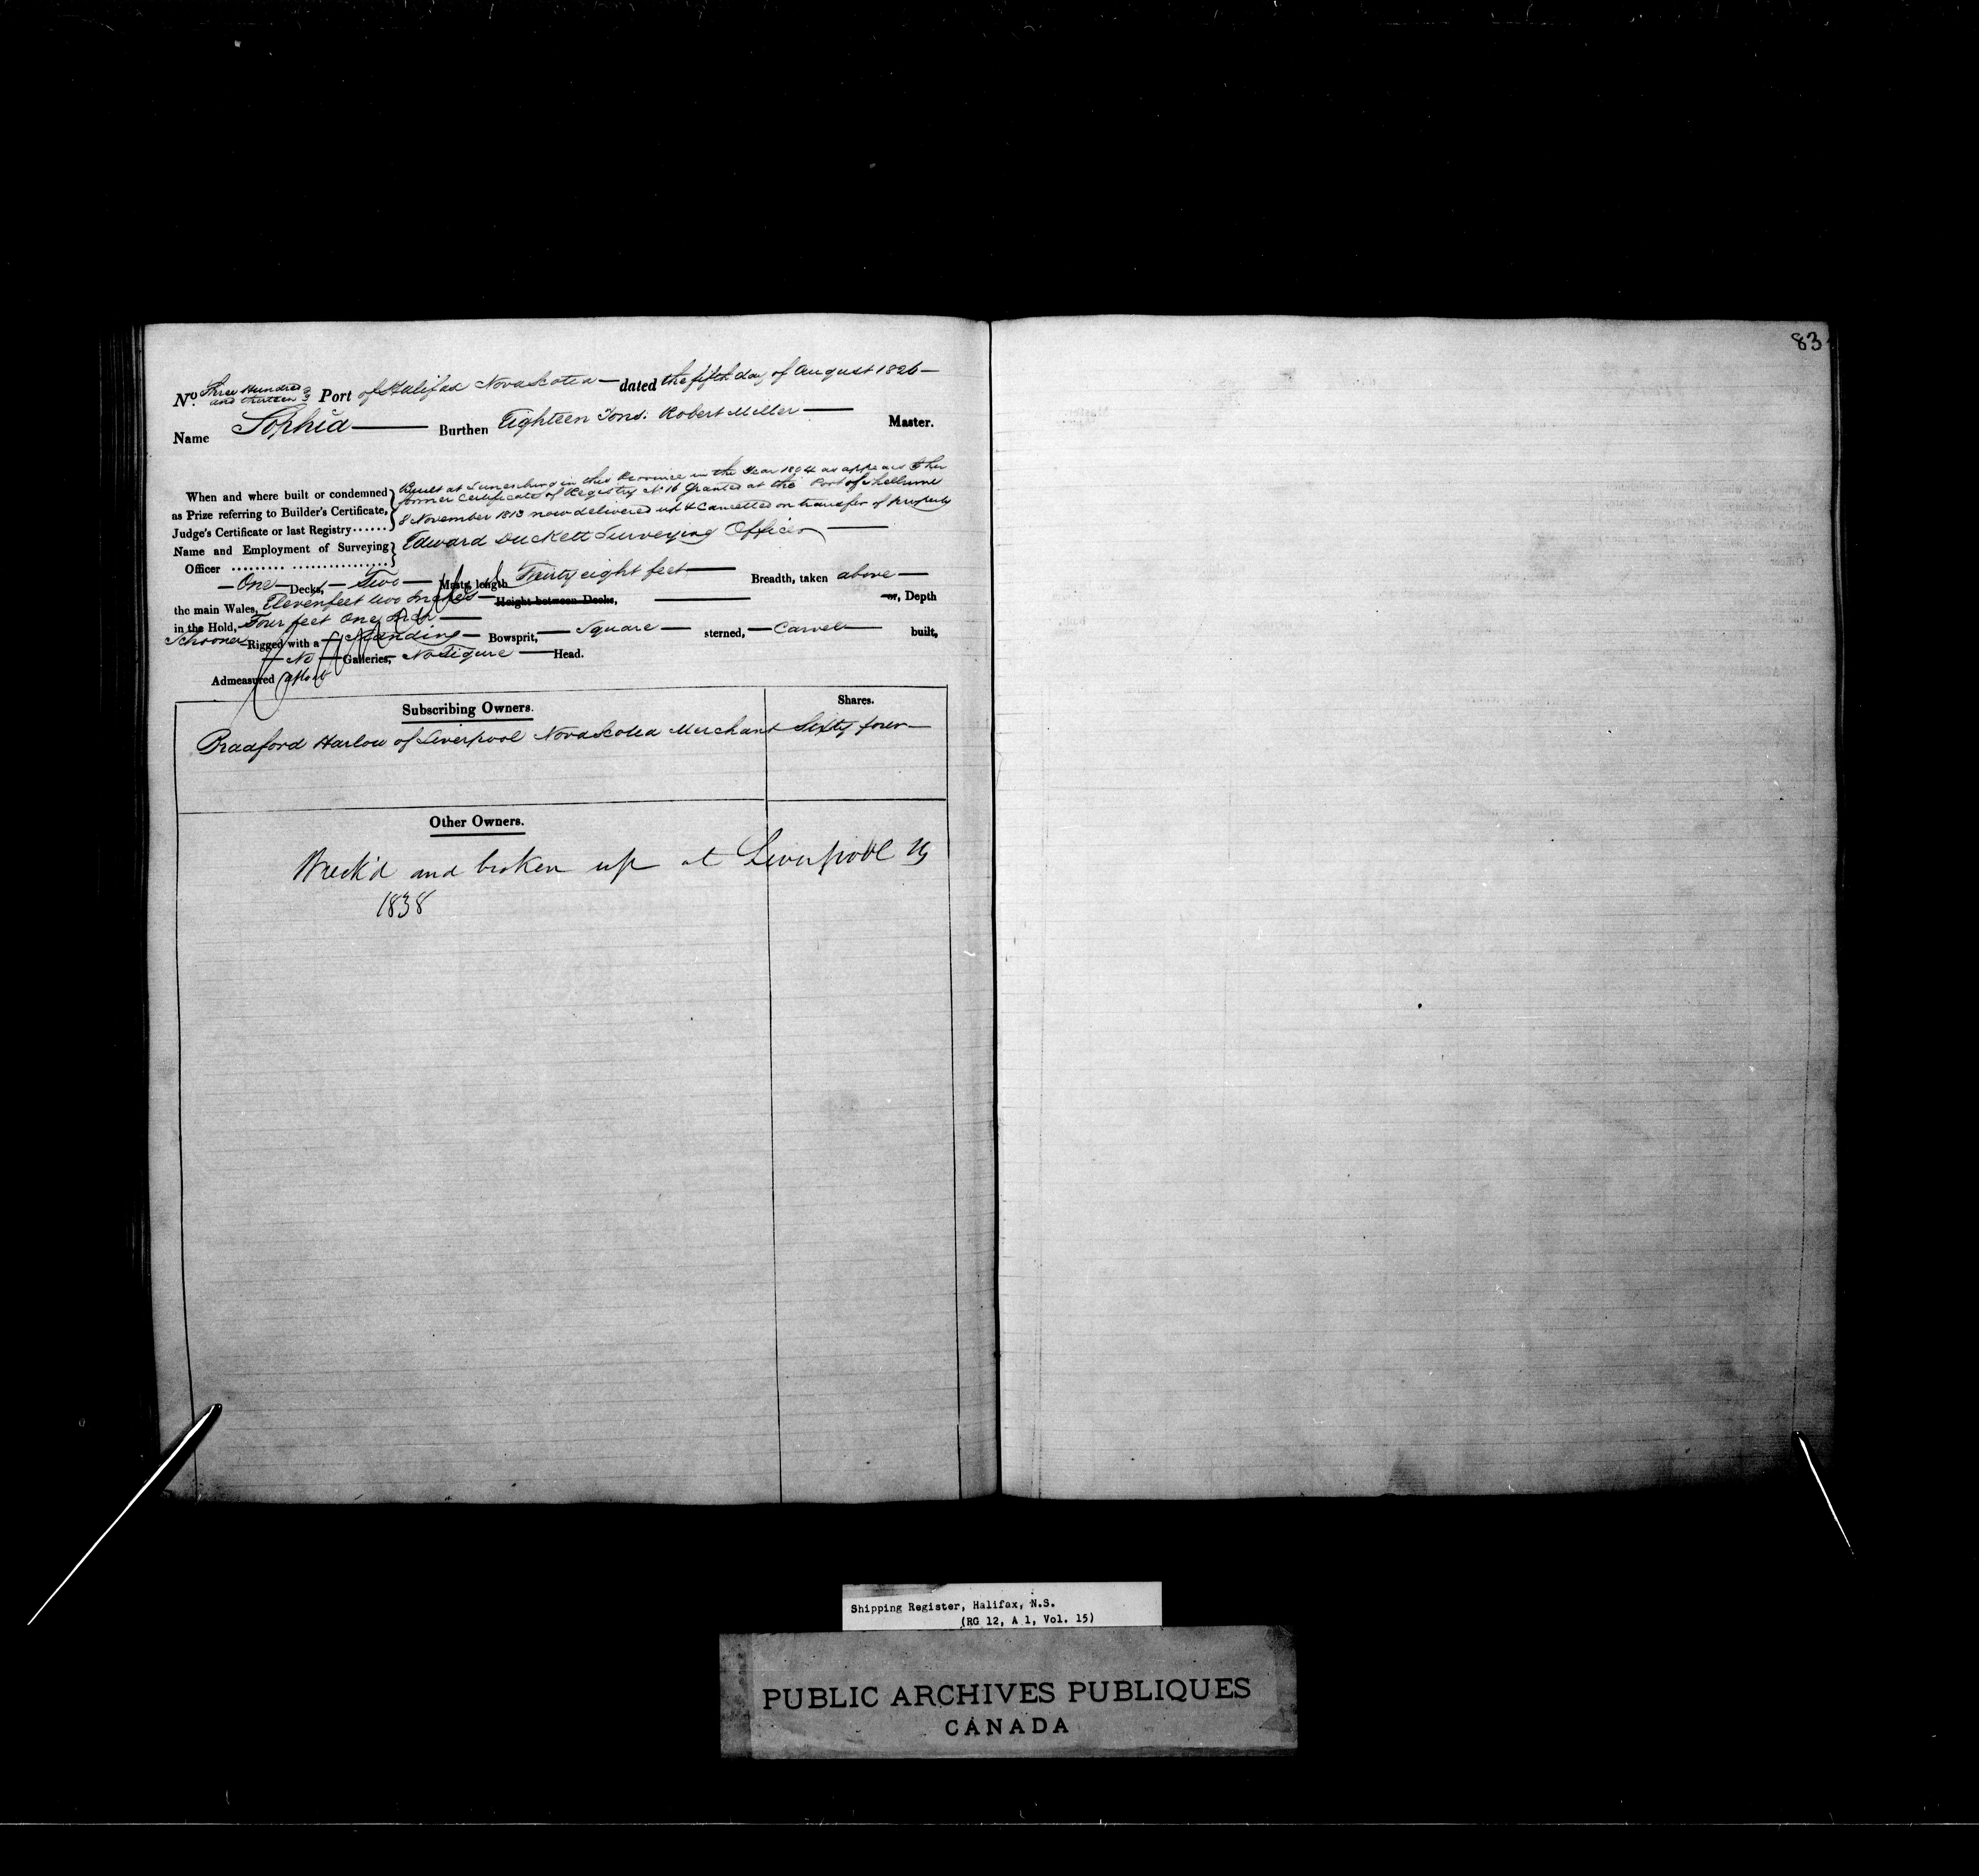 83
No. Three Hundred and thirteen 313 Port of Halifax Nova Scotia — dated the fifth day of August 1826 —
Name Sophia — Burthen Eighteen Tons. Robert Miller — Master.
When and where built or condemned as Prize referring to Builder's Certificate, Judge's Certificate or last Registry ......
Built at Lunenburg in this Province in the Year 1804 as appears by her
former Certificate of Registry No 16 Granted at the Port of Shelburne
8 November 1813 now delivered up & Cancelled on transfer of property
Name and Employment of Surveying Officer ......... ................ Edward Duckett Surveying Officer —
— One — Decks, — Two — Masts, length eight feet — Breadth, taken above —
the main Wales, Eleven feet two Inches — Height between Decks, — or, Depth
in the Hold, Four feet One Inch —
Schooner Rigged with a Standing — Bowsprit, — Square — sterned, — Carvel — built,
— No — Galleries, — No Figure — Head.
Admeasured afloat
Subscribing Owners. Shares.
Bradford Harlow of Liverpool Nova Scotia Merchant Sixty four —
Other Owners.
Wreck'd and broken up at Liverpool
1838
Shipping Register, Halifax, N.S.
(RG 12, A 1, Vol. 15)
PUBLIC ARCHIVES PUBLIQUES
CANADA